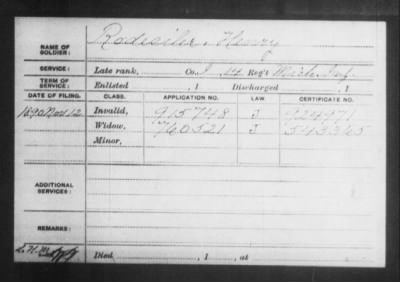 NAME OF SOLDIER: Rodesiler, Henry
SERVICE: Late rank, Co. I, 14 Reg't Mich. Inf.
TERM OF SERVICE: Enlisted , 1 Discharged , 1
DATE OF FILING. CLASS. APPLICATION NO. LAW. CERTIFICATE NO.
1890 Nov 12 Invalid, 915748 J
Widow, 760521 J 543365
Minor,
ADDITIONAL SERVICES:
REMARKS:
Died , 1 , at